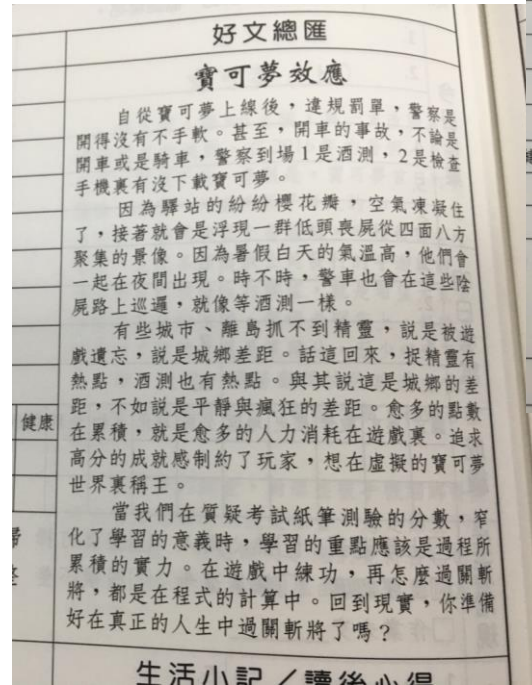 好文總匯
寶可夢效應
自從寶可夢上線後，違規罰單，警察是
開得沒有不手軟。甚至，開車的事故，不論是
開車或是騎車，警察到場1是酒測，2是檢查
手機裏有沒下載寶可夢。
因為驛站的紛紛櫻花瓣，空氣凍凝住
了，接著就會是浮現一群低頭喪屍從四面八方
聚集的景像。因為暑假白天的氣溫高，他們會
一起在夜間出現。時不時，警車也會在這些陰
屍路上巡邏，就像等酒測一樣。
有些城市、離島抓不到精靈，說是被遊
戲遺忘，說是城鄉差距。話這回來，捉精靈有
熱點，酒測也有熱點。與其說這是城鄉的差
距，不如說是平靜與瘋狂的差距。愈多的點數
在累積，就是愈多的人力消耗在遊戲裏。追求
高分的成就感制約了玩家，想在虛擬的寶可夢
世界裏稱王。
當我們在質疑考試紙筆測驗的分數，窄
化了學習的意義時，學習的重點應該是過程所
累積的實力。在遊戲中練功，再怎麼過關斬
將，都是在程式的計算中。回到現實，你準備
好在真正的人生中過關斬將了嗎？
健康
生活小記／讀後心得